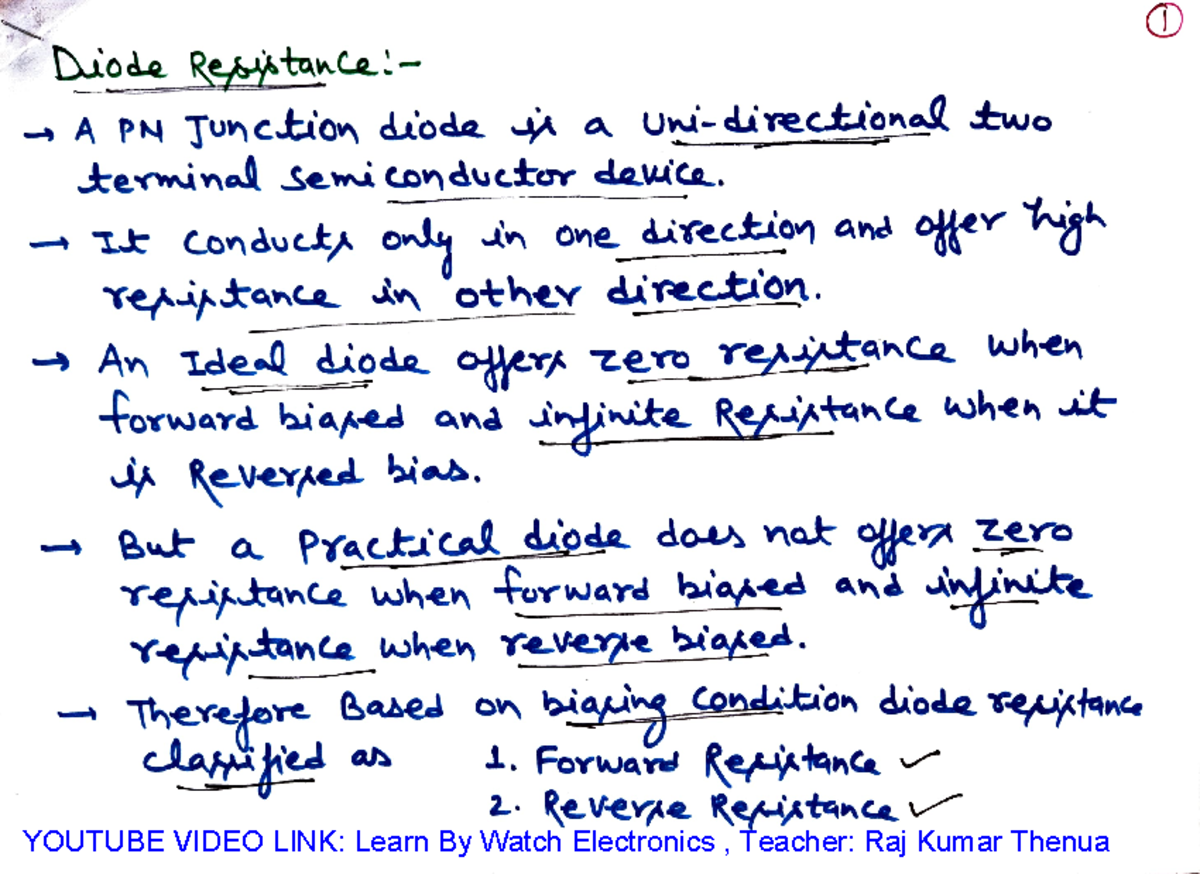 1
Diode Resistance:-
→ A PN Junction diode is a uni-directional two
terminal semiconductor device.
→ It conducts only in one direction and offer high
resistance in other direction.
→ An Ideal diode offers zero resistance when
forward biased and infinite Resistance when it
is Reversed bias.
→ But a Practical diode does not offers zero
resistance when forward biased and infinite
resistance when reverse biased.
→ Therefore Based on biasing condition diode resistance
classified as 1. Forward Resistance ✓
2. Reverse Resistance ✓
YOUTUBE VIDEO LINK: Learn By Watch Electronics , Teacher: Raj Kumar Thenua